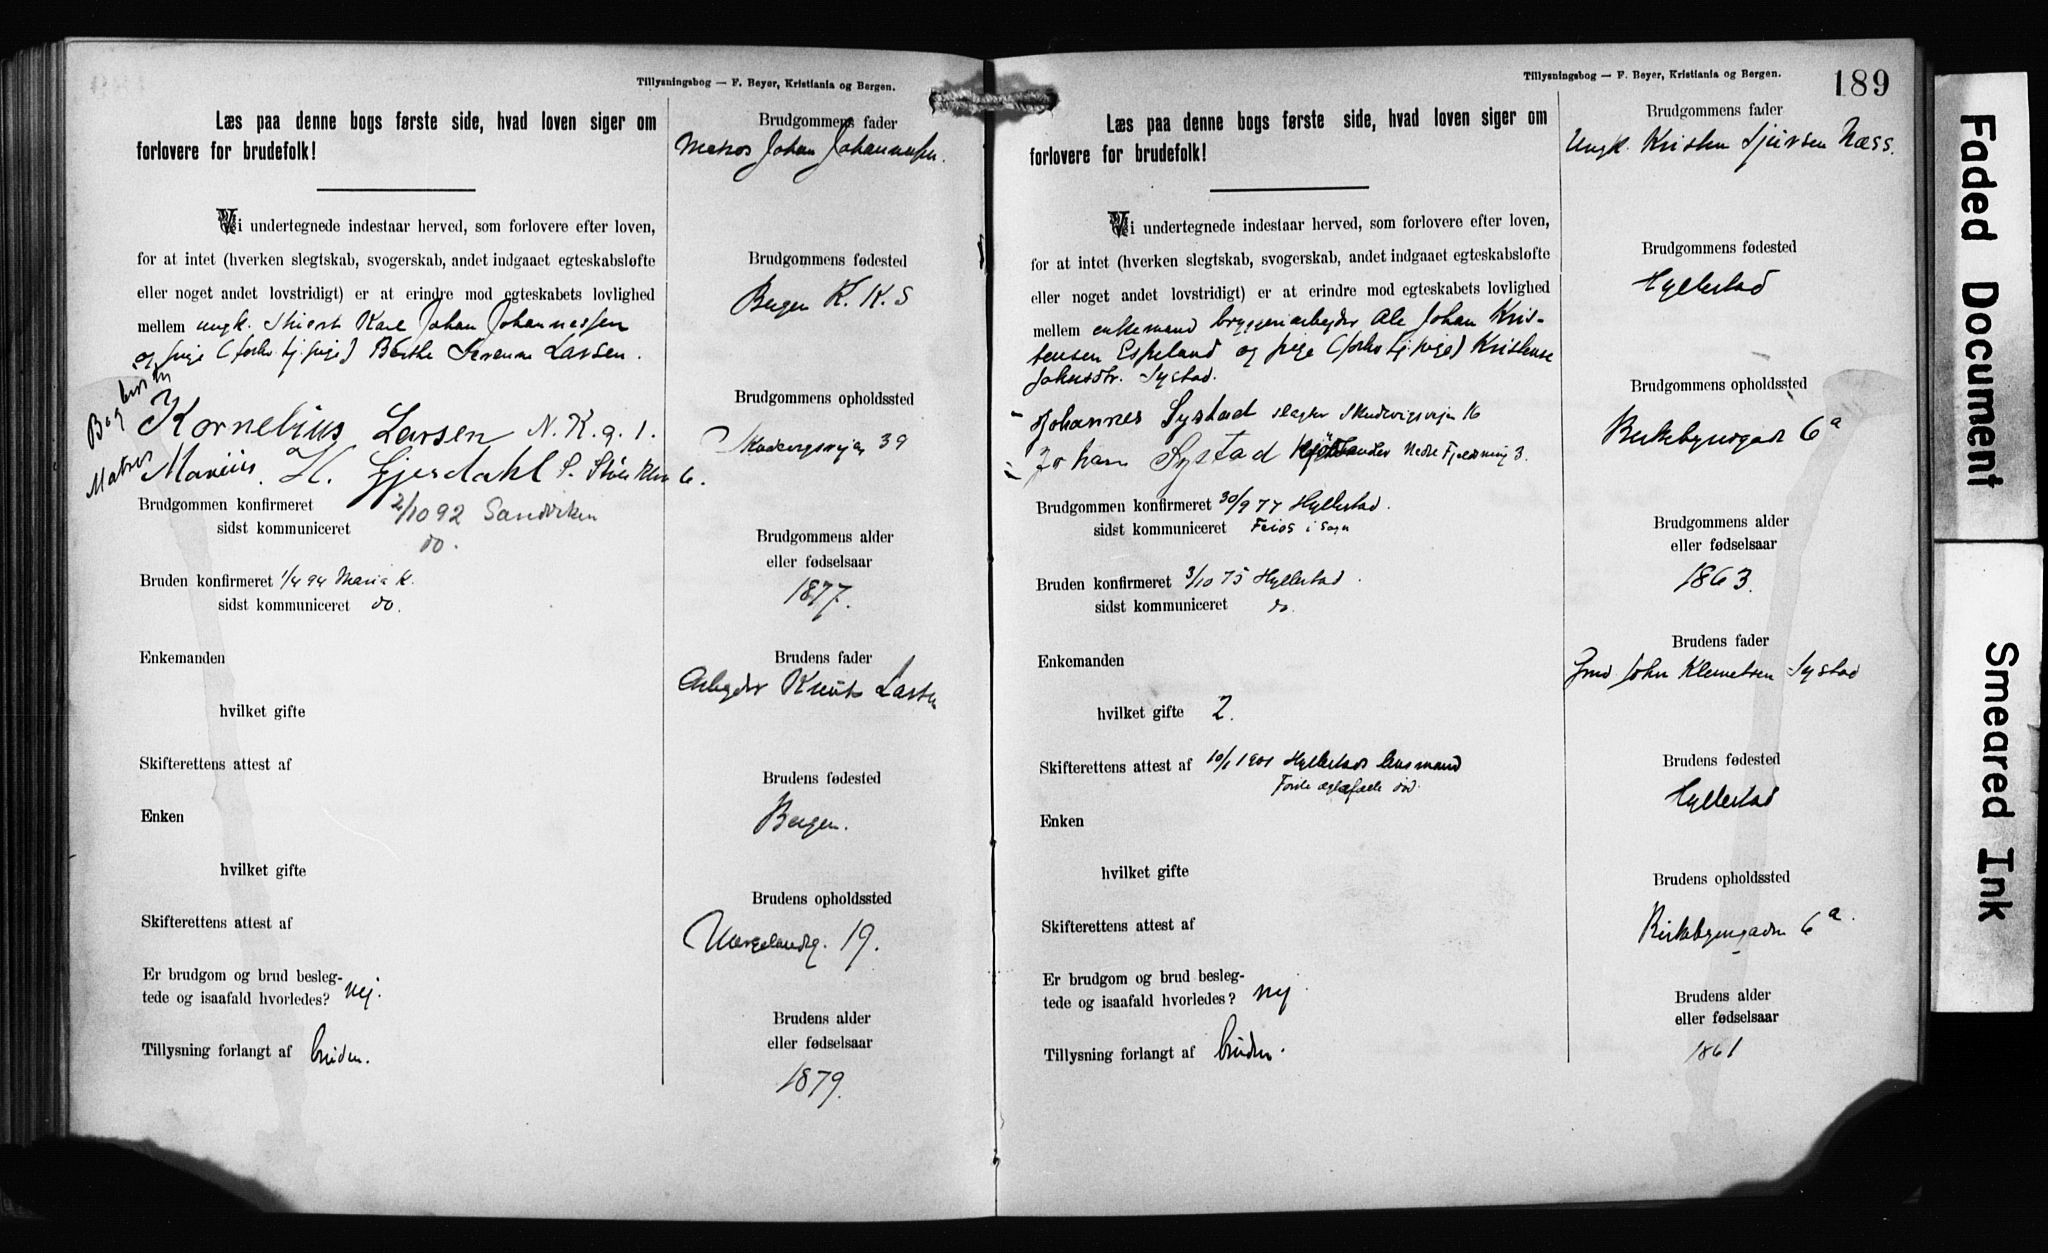 Tillysningsbog — F. Beyer, Kristiania og Bergen.
Læs paa denne bogs første side, hvad loven siger om
forlovere for brudefolk!
Vi undertegnede indestaar herved, som forlovere efter loven,
for at intet (hverken slegtskab, svogerskab, andet indgaaet egteskabsløfte
eller noget andet lovstridigt) er at erindre mod egteskabets lovlighed
mellem ungk. Karl Johan Johannessen
og pige (forhv tj. pige) Berthe Larsen.
Kornelius Larsen N. K. g. 1.
Matros Marius H. Gjerdahl 6.
Brudgommen konfirmeret 2/10 92 Sandviken
sidst kommuniceret do.
Bruden konfirmeret 1/4 94 Maria K.
sidst kommuniceret do.
Enkemanden
hvilket gifte
Skifterettens attest af
Enken
hvilket gifte
Skifterettens attest af
Er brudgom og brud besleg-
tede og isaafald hvorledes? nej.
Tillysning forlangt af bruden.
Brudgommens fader
Matros Johan Johannessen.
Brudgommens fødested
Bergen K. K. S
Brudgommens opholdssted
39
Brudgommens alder
eller fødselsaar
1877.
Brudens fader
Arbeider Knut Larsen
Brudens fødested
Bergen.
Brudens opholdssted
19.
Brudens alder
eller fødselsaar
1879.
Tillysningsbog — F. Beyer, Kristiania og Bergen.
189
Læs paa denne bogs første side, hvad loven siger om
forlovere for brudefolk!
Vi undertegnede indestaar herved, som forlovere efter loven,
for at intet (hverken slegtskab, svogerskab, andet indgaaet egteskabsløfte
eller noget andet lovstridigt) er at erindre mod egteskabets lovlighed
mellem enkemand bryggeriarbejder Ole Johan Kris-
tensen Espeland og pige (forhv tj. pige) Kristense
Johnsdtr. Systad.
Johannes Systad slagter 16
Johan Systad Nedre Fjeldsmug 3.
Brudgommen konfirmeret 30/9 77 Hyllestad.
sidst kommuniceret Feios i Sogn
Bruden konfirmeret 3/10 75 Hyllestad.
sidst kommuniceret do.
Enkemanden
hvilket gifte 2.
Skifterettens attest af 10/1 1901 Hyllestads lensmand
Første ægtefælle død.
Enken
hvilket gifte
Skifterettens attest af
Er brudgom og brud besleg-
tede og isaafald hvorledes? nej
Tillysning forlangt af bruden.
Brudgommens fader
Ungk. Kristen Sjursen Næss.
Brudgommens fødested
Hyllestad
Brudgommens opholdssted
Birkebynsgade 6a
Brudgommens alder
eller fødselsaar
1863.
Brudens fader
Grmd John Klemetsen Systad
Brudens fødested
Hyllestad
Brudens opholdssted
Birkebynsgaden 6a.
Brudens alder
eller fødselsaar
1861
Faded Document
Smeared Ink